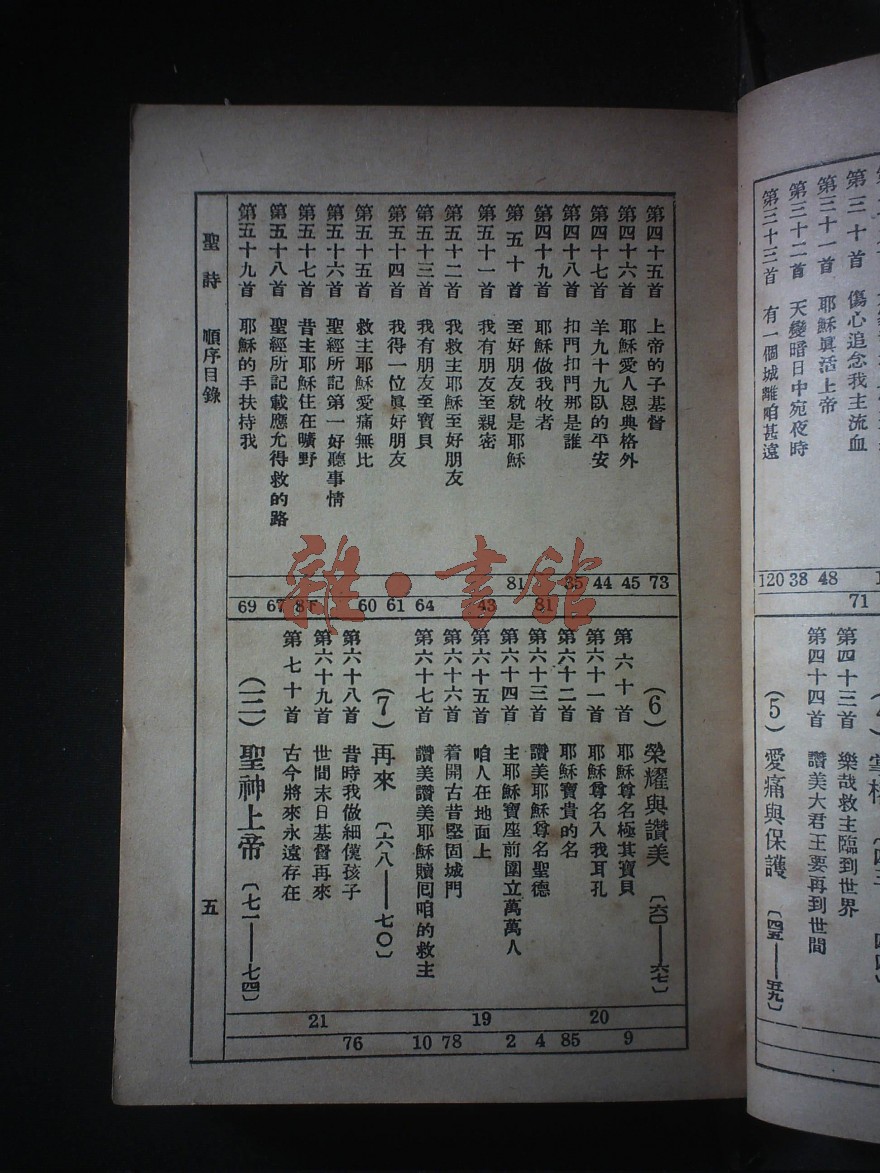 第三十首 傷心追念我主流血
第三十一首 耶穌眞活上帝
第三十二首 天變暗日中宛夜時
第三十三首 有一個城離咱甚遠
48
38
120
71
第四十三首 樂哉救主臨到世界
第四十四首 讚美大君王要再到世間
(5) 愛痛與保護 〔四五——五九〕
第四十五首 上帝的子基督
第四十六首 耶穌愛人恩典格外
第四十七首 羊九十九臥的平安
第四十八首 扣門扣門那是誰
第四十九首 耶穌做我牧者
第五十首 至好朋友就是耶穌
第五十一首 我有朋友至親密
第五十二首 我救主耶穌至好朋友
第五十三首 我有朋友至寶貝
第五十四首 我得一位眞好朋友
第五十五首 救主耶穌愛痛無比
第五十六首 聖經所記第一好聽事情
第五十七首 昔主耶穌住在曠野
第五十八首 聖經所記載應允得救的路
第五十九首 耶穌的手扶持我
81 35 44 45 73
69 67 8下 60 61 64 43 81
(6) 榮耀與讚美 〔六〇——六七〕
第六十首 耶穌尊名極其寶貝
第六十一首 耶穌尊名入我耳孔
第六十二首 耶穌寶貴的名
第六十三首 讚美耶穌尊名聖德
第六十四首 主耶穌寶座前圍立萬萬人
第六十五首 咱人在地面上
第六十六首 着開古昔堅固城門
第六十七首 讚美讚美耶穌贖囘咱的救主
(7) 再來 〔六八——七〇〕
第六十八首 昔時我做細僕孩子
第六十九首 世間末日基督再來
第七十首 古今將來永遠存在
(三) 聖神上帝 〔七一——七四〕
21 19 20
76 10 78 2 4 85 9
聖詩 順序目錄
五
雜·書館